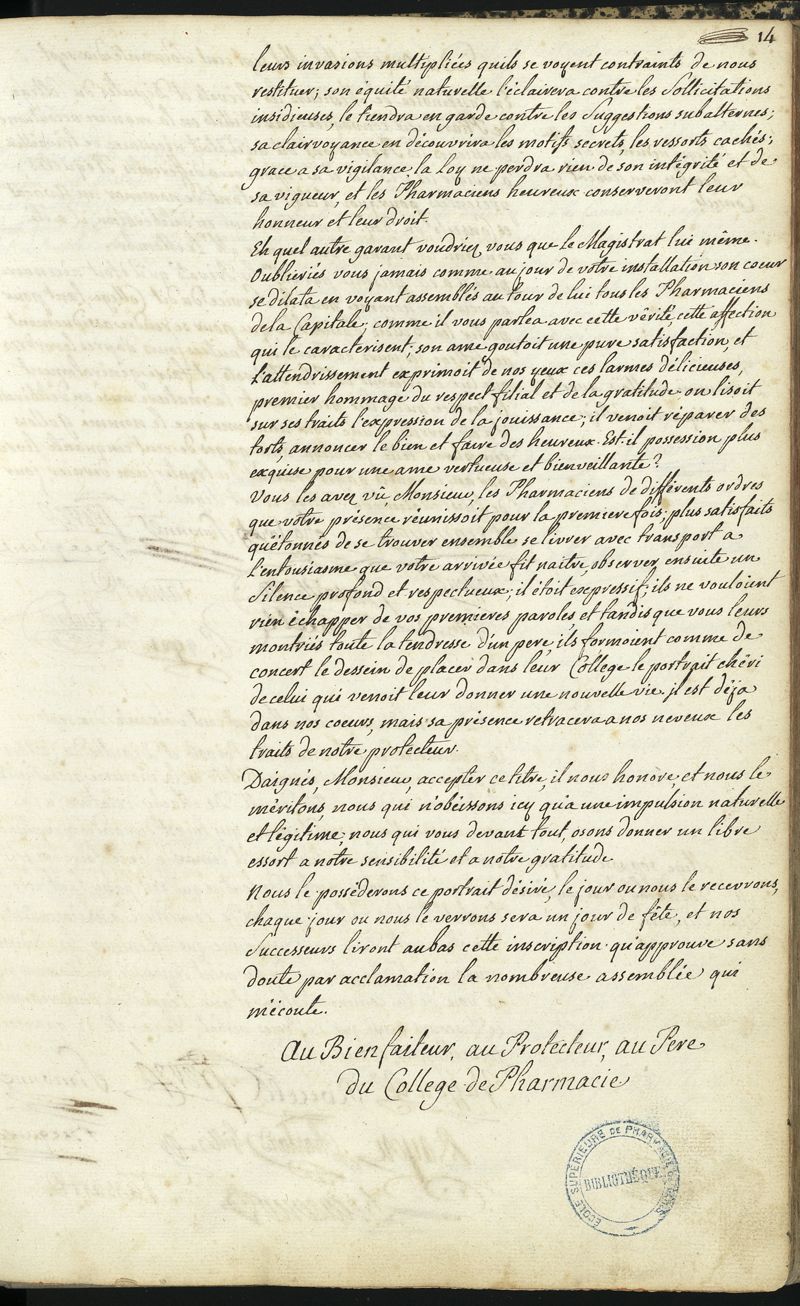 14
leurs invasions multipliées quils se voyent contraints de nous
restituer; son équité naturelle l'éclairera contre les Sollicitations
insidieuses, le tiendra en garde contre les Suggestions subalternes;
sa clairvoyance en découvrira les motifs secrets, les ressorts cachés;
grace a sa vigilance, la Loy ne perdra rien de son intégrité et de
sa vigueur, et les Pharmaciens heureux conserveront leur
honneur et leur droit.
Eh quel autre garant voudriez vous que le Magistrat lui même.
Oublieriés vous jamais comme au jour de votre installation son coeur
se dilata en voyant assemblés autour de lui tous les Pharmaciens
dela Capitale; comme il vous parlea avec cette vérité, cette affection
qui le caracterisent; son ame goutoit une pure satisfaction, et
l'attendrissement exprimoit de nos yeux ces larmes délicieuses,
premier hommage du respect filial et de la gratitude. on lisoit
sur ses traits l'expression de la jouissance; il venoit réparer des
torts, annoncer le bien et faire des heureux. Est-il possession plus
exquise pour une ame vertueuse et bienveillante?
Vous les avez vû, Monsieur, les Pharmaciens de différents ordres
que votre présence réunissoit pour la premiere fois; plus satisfaits
qu'étonnés de se trouver ensemble se livrer avec transport a
l'entousiasme que votre arrivée fit naitre, observer ensuite un
Silence profond et respectueux; il étoit expressif; ils ne vouloient
rien échapper de vos premieres paroles, et tandis que vous leurs
montriés toute la tendresse d'un pere, ils formoient comme de
concert le dessein de placer dans leur College le portrait chéri
de celui qui venoit leur donner une nouvelle vie. il est déja
dans nos coeurs, mais sa présence retracera a nos neveux les
traits de notre protecteur.
Daignés, Monsieur, accepter ce titre, il nous honore, et nous le
méritons, nous qui n'obéissons icy qu'a une impulsion naturelle
et légitime; nous qui vous devant tout, osons donner un libre
essort a notre sensibilité et a notre gratitude
Nous le posséderons ce portrait désiré, le jour ou nous le recevrons,
chaque jour ou nous le verrons sera un jour de fête, et nos
Successeurs liront au bas cette inscription qu'approuve sans
doute par acclamation la nombreuse assemblée qui
m'écoute.
Au Bienfaiteur, au Protecteur, au Pere
du College de Pharmacie
ÉCOLE SUPÉRIEURE DE PHARMACIE DE PARIS
BIBLIOTHÈQUE